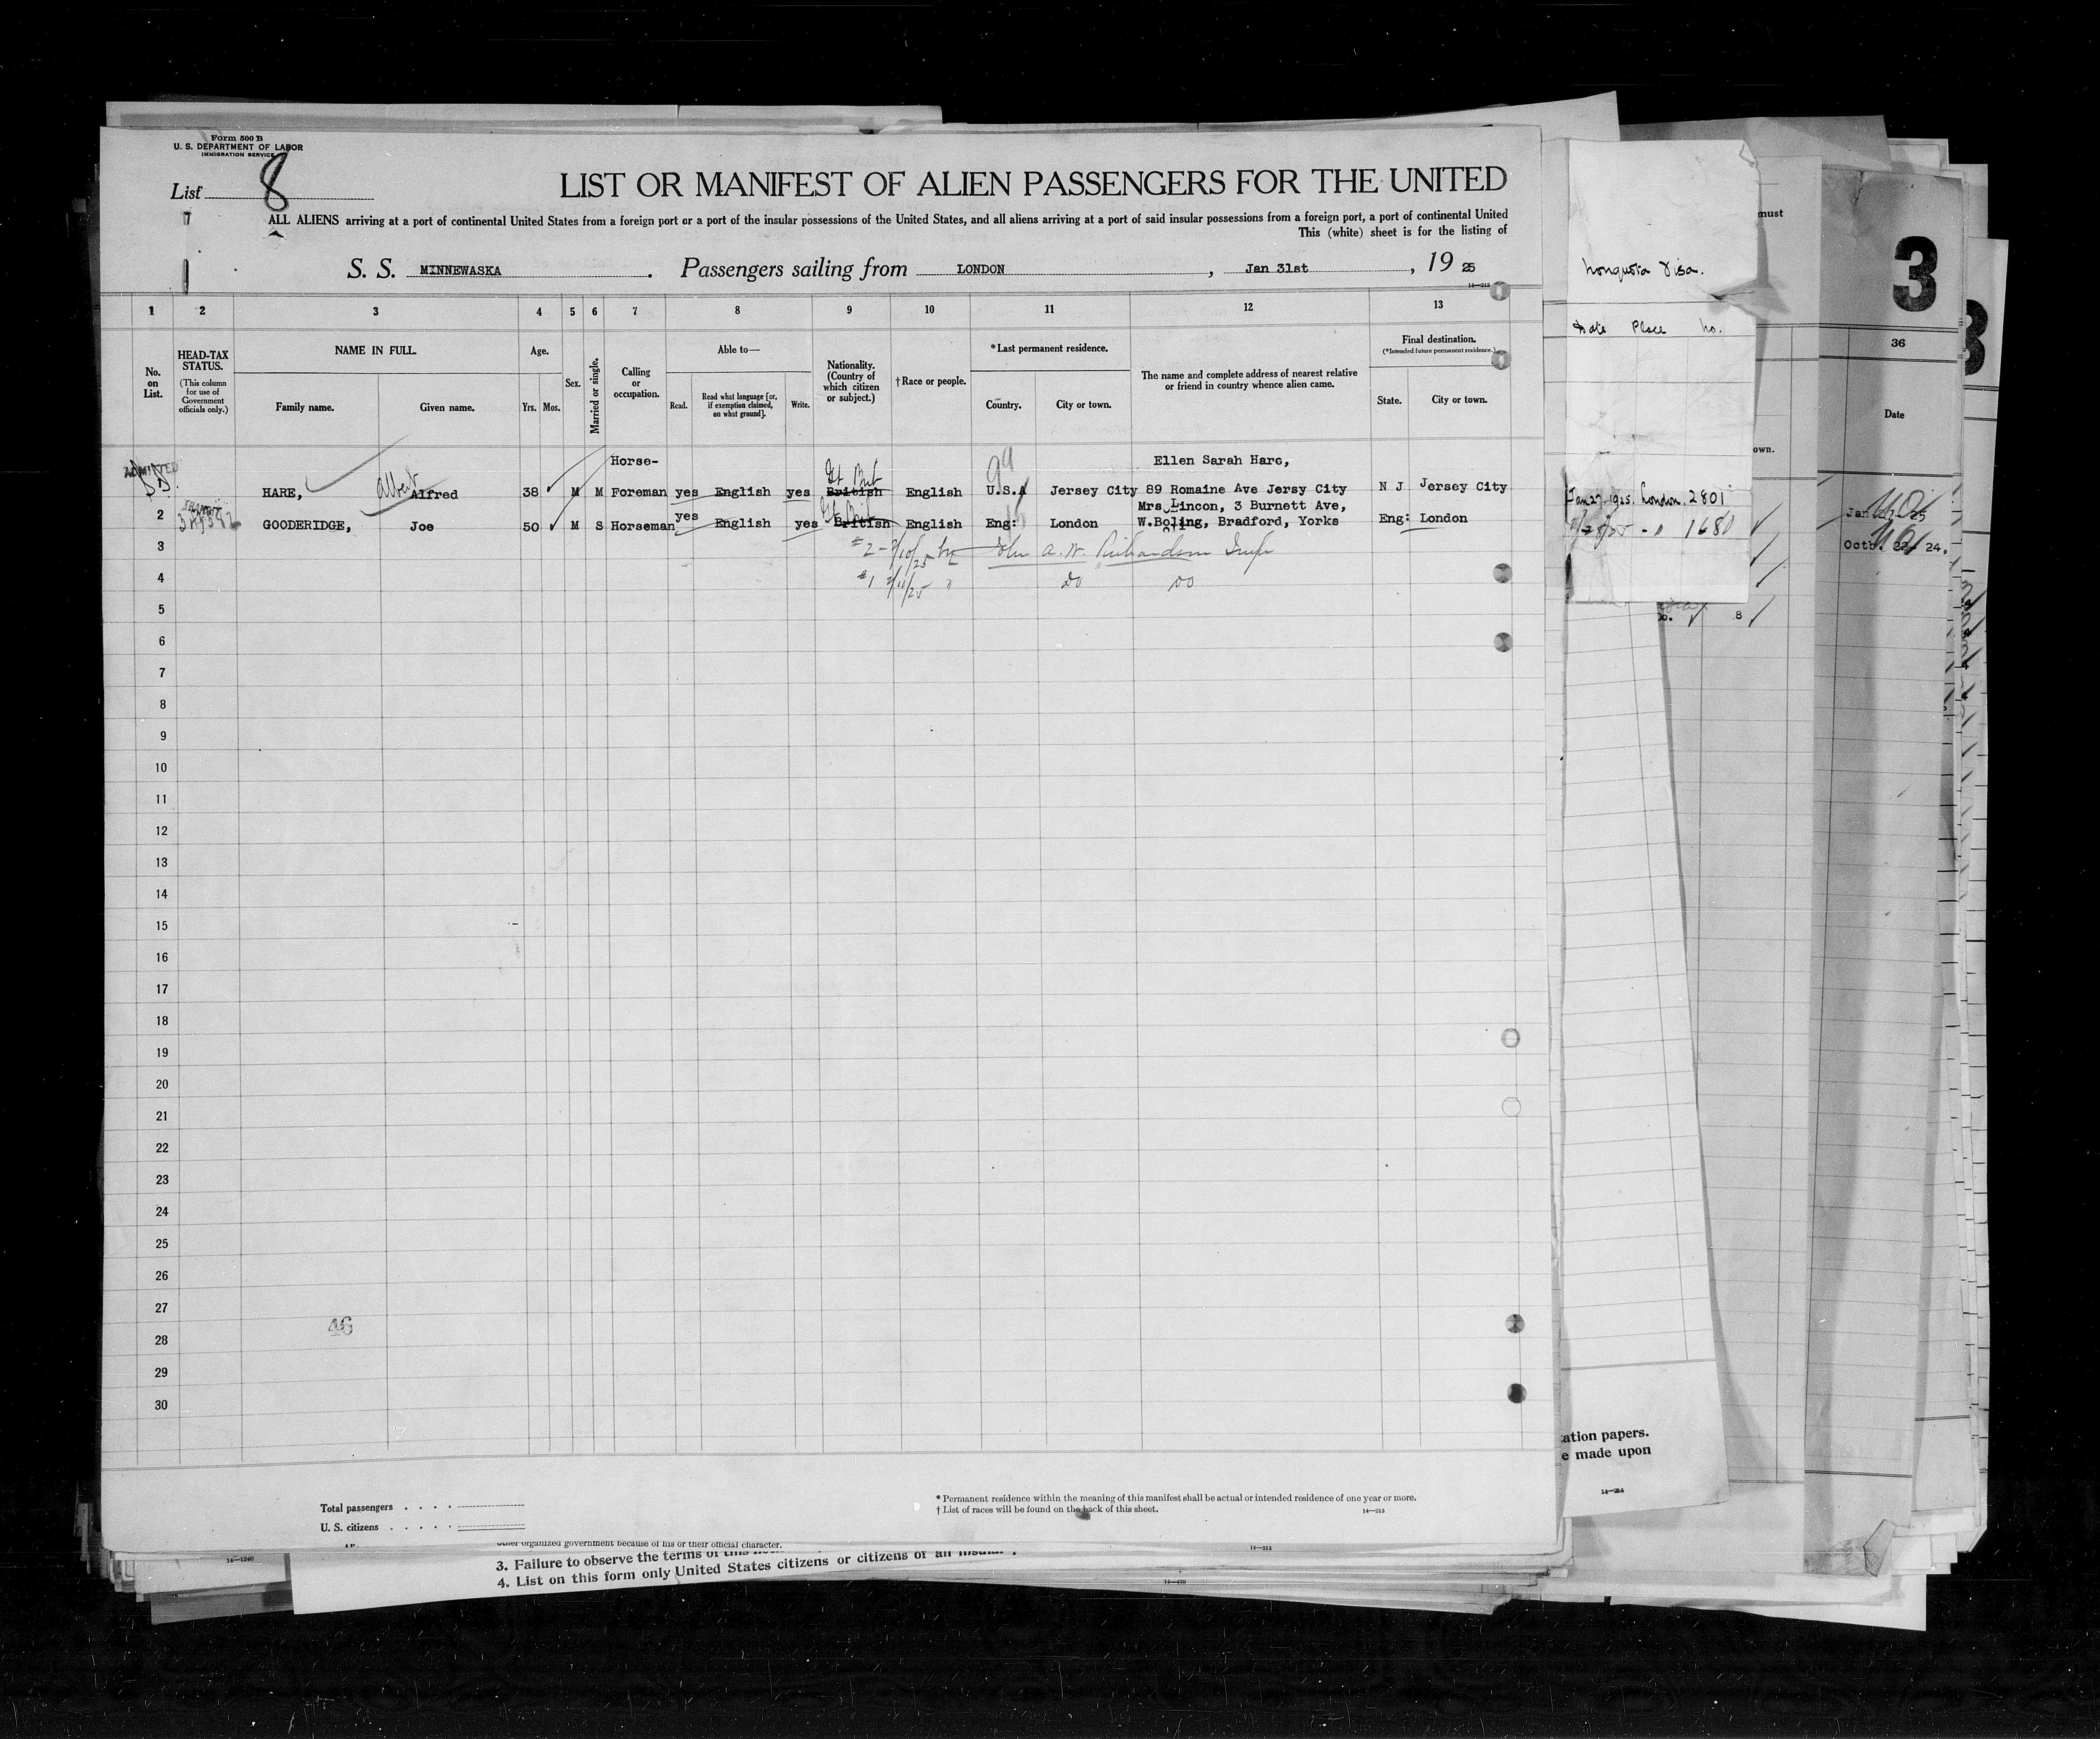 Form 500 B
U. S. DEPARTMENT OF LABOR
IMMIGRATION SERVICE
List 8
LIST OR MANIFEST OF ALIEN PASSENGERS FOR THE UNITED
ALL ALIENS arriving at a port of continental United States from a foreign port or a port of the insular possessions of the United States, and all aliens arriving at a port of said insular possessions from a foreign port, a port of continental United
This (white) sheet is for the listing of
S. S. MINNEWASKA. Passengers sailing from LONDON, Jan 31st, 19 25
14—213
1 2 3 4 5 6 7 8 9 10 11 12 13
No. on List.
HEAD-TAX STATUS.
(This column for use of Government officials only.)
NAME IN FULL.
Family name. Given name.
Age.
Yrs. Mos.
Sex.
Married or single.
Calling or occupation.
Able to—
Read. Read what language [or, if exemption claimed, on what ground]. Write.
Nationality. (Country of which citizen or subject.)
†Race or people.
*Last permanent residence.
Country. City or town.
The name and complete address of nearest relative or friend in country whence alien came.
Final destination.
(*Intended future permanent residence.)
State. City or town.
ADMITTED
Horse- Ellen Sarah Hare,
Albert Gt Brit 99
HARE, Alfred 38 M M Foreman yes English yes British English U.S.A Jersey City 89 Romaine Ave Jersy City N J Jersey City
Gt Brit Mrs Lincon, 3 Burnett Ave,
2 GOODERIDGE, Joe 50 M S Horseman yes English yes British English Eng: London W.Boling, Bradford, Yorks Eng: London
3 #2 - 2/10/25 by John A. W. Richardson Insp
4 #1 2/11/25 " do do
5
6
7
8
9
10
11
12
13
14
15
16
17
18
19
20
21
22
23
24
25
26
27
46
28
29
30
Total passengers
U. S. citizens
* Permanent residence within the meaning of this manifest shall be actual or intended residence of one year or more.
† List of races will be found on the back of this sheet.
14—213
14—1240
other organized government because of his or their official character.
14—213
3. Failure to observe the terms of this
4. List on this form only United States citizens or citizens of an insular
Nonquota Visa.
Date Place No.
Jan 27-1925. London. 2801
1680
must
own.
8
3
36
Date
Jan 27- 25
Octb. 22- 24.
ation papers.
e made upon
14—214